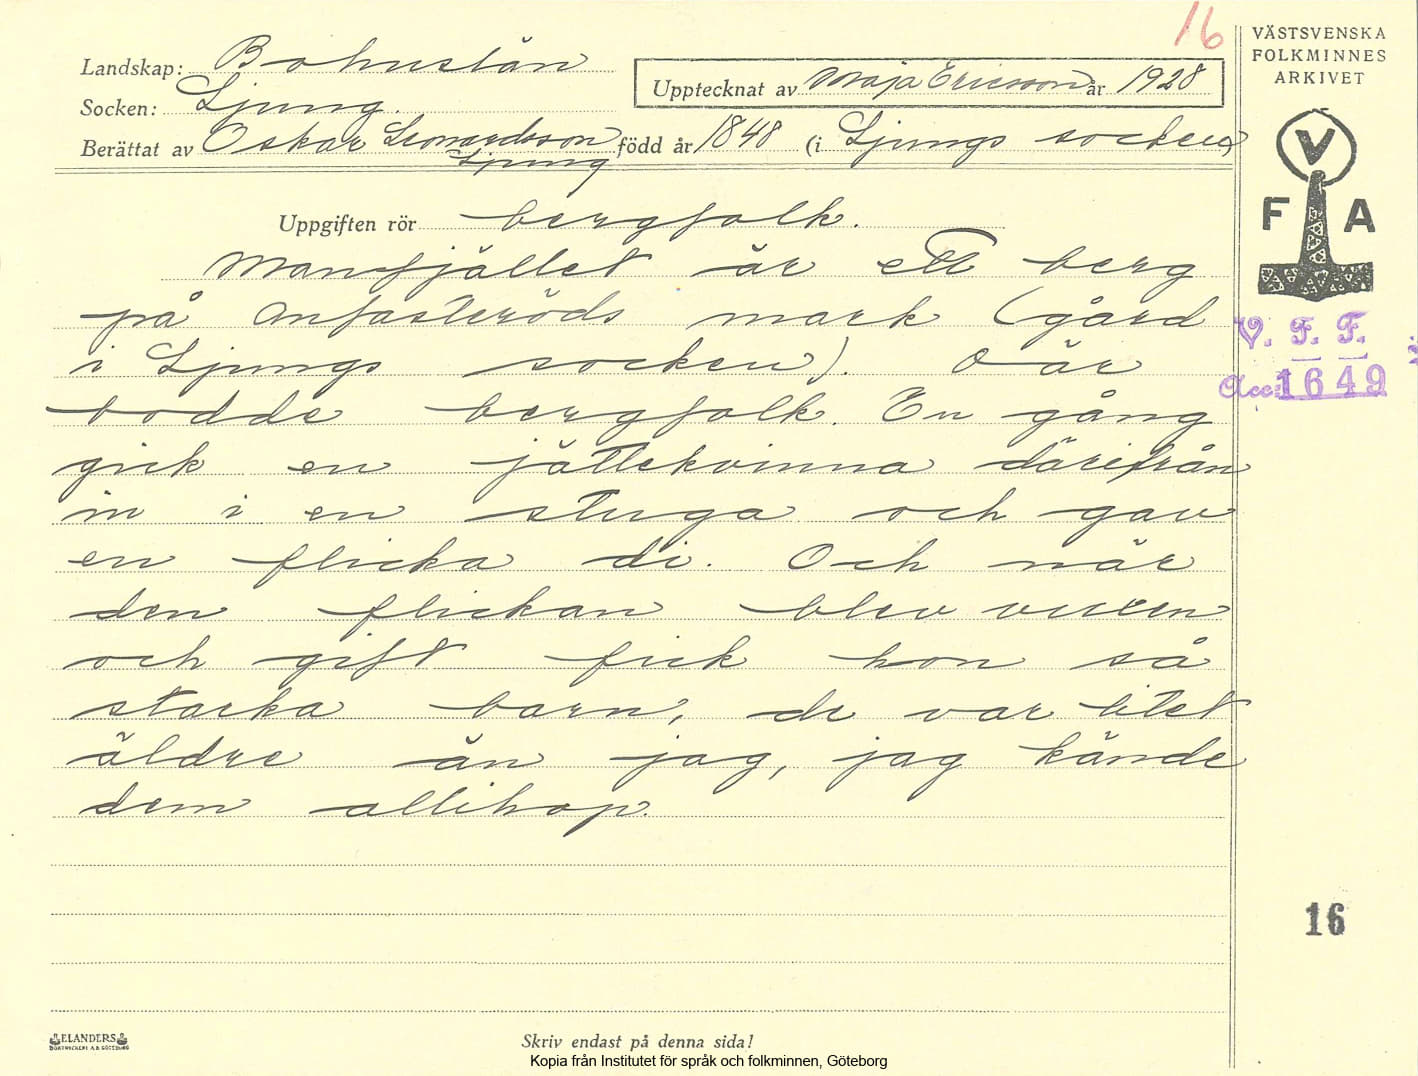 16
VÄSTSVENSKA
FOLKMINNES
ARKIVET
Landskap: Bohuslän
Upptecknat av Maja Ericsson år 1928
Socken: Ljung.
Berättat av Oskar Leonardsson född år 1848 (i Ljungs socken)
Ljung
V
F A
Uppgiften rör bergfolk.
Manfjället är ett berg
på Anfasteröds mark (gård
i Ljungs socken). Där
bodde bergfolk. En gång
gick en jättekvinna därifrån
in i en stuga och gav
en flicka di. Och när
den flickan blev vuxen
och gift fick hon så
starka barn, de var litet
äldre än jag, jag kände
dem allihop.
V. F. F.
Acc: 1649
16
ELANDERS
BOKTRYCKERI A.B. GÖTEBORG
Skriv endast på denna sida!
Kopia från Institutet för språk och folkminnen, Göteborg